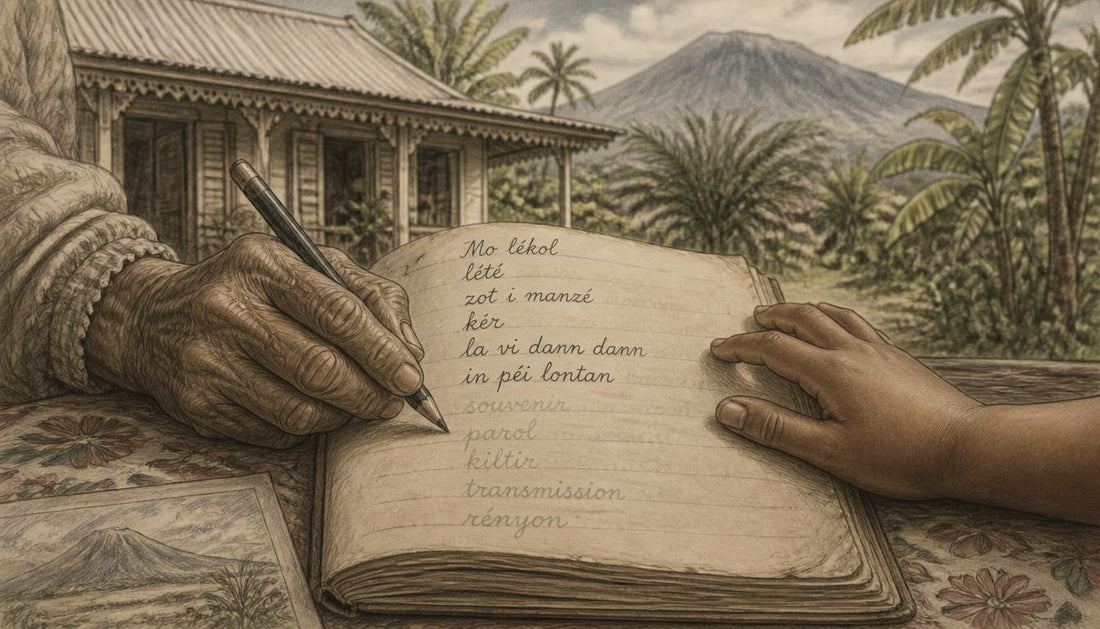 Mo lékol
lété
zot i manzé
kér
la vi dann dann
in péi lontan
souvenir
parol
kiltir
transmission
rényon